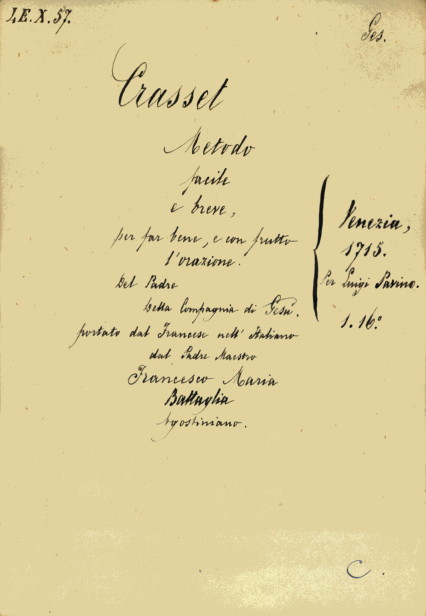 I.E.X.57.
Ges.
Crasset
Metodo
facile
e breve,
per far bene, e con frutto
l'orazione.
Del Padre
della Compagnia di Gesù.
portato dal Francese nell' Italiano
dal Padre Maestro
Francesco Maria
Battaglia
Agostiniano.
Venezia,
1715.
Per Luigi Pavino.
1. 16.°
C.